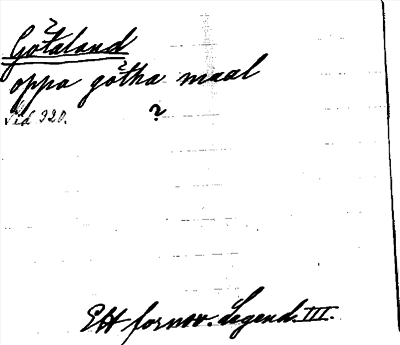 Götaland
oppa götha maal
Sid 920. ?
Ett fornsv. Legend. III.